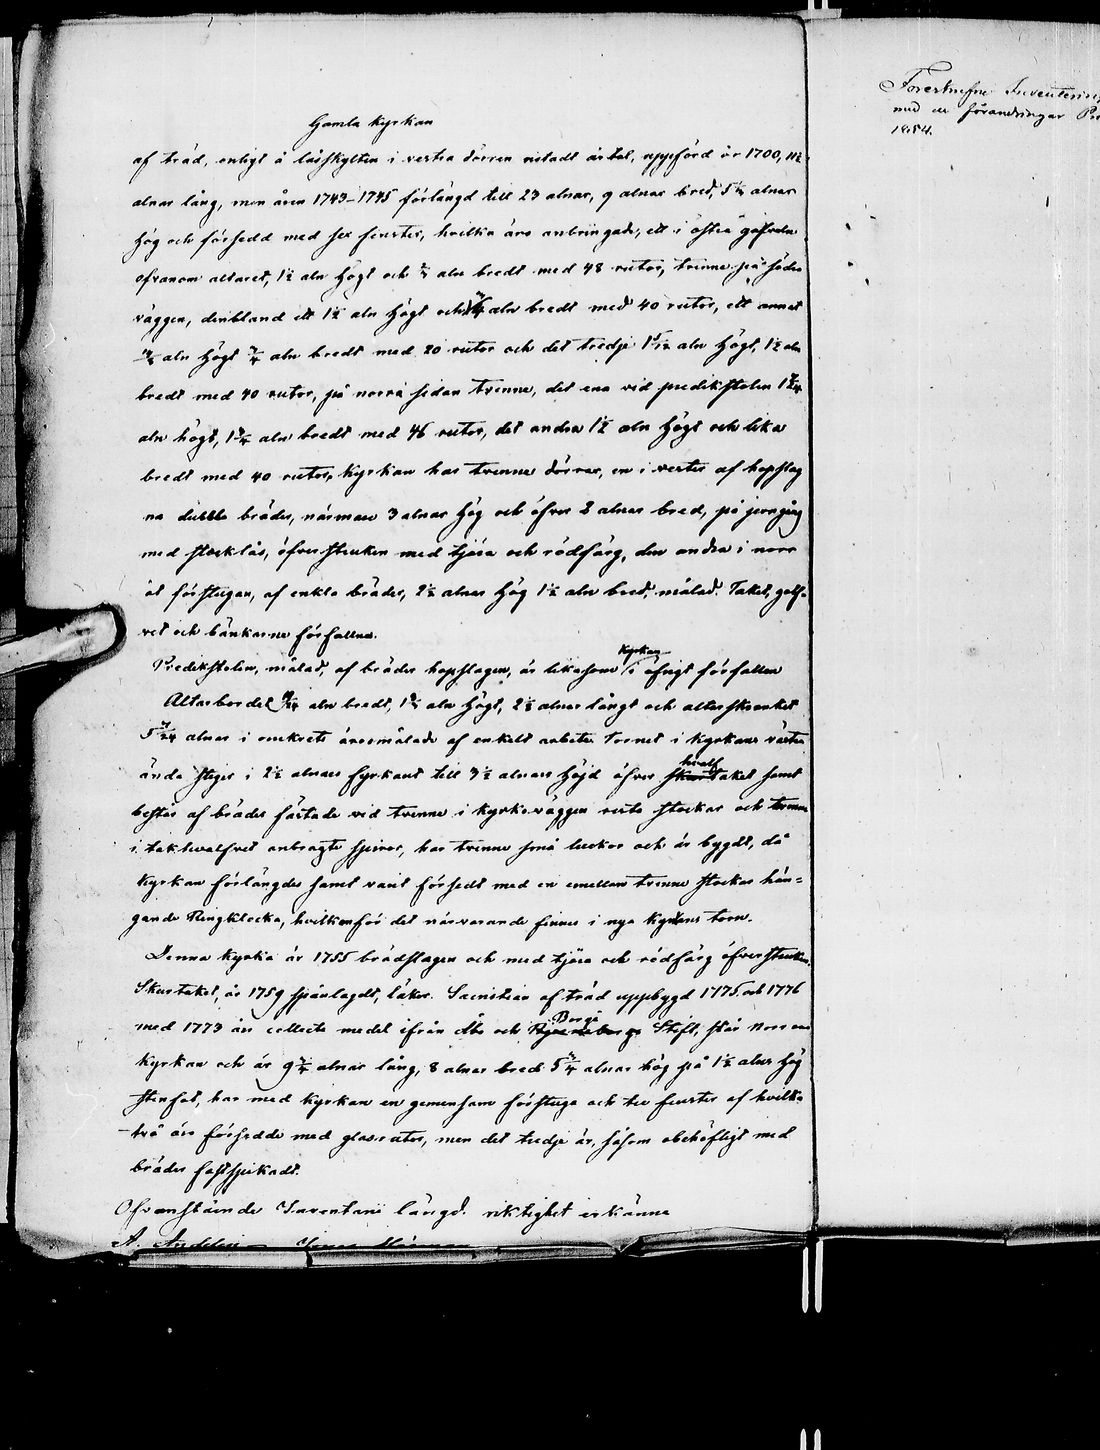 Gamla Kyrkan
af träd, enligt å låsskylten i vestra dörren ristadt årtal, uppförd år 1700, 11½
alnar lång, men åren 1743–1745 förlängd till 23 alnar, 9 alnar bred, 5¼ alnar
hög och försedd med sex fenster, hvilka äro anbringade, ett i östra gafveln
ofvanom altaret, 1½ aln högt och ¾ aln bredt med 48 rutor, trenne på södra
väggen, deribland ett 1½ aln högt och aln bredt med 40 rutor, ett annat
aln högt ¾ aln bredt med 20 rutor och det tredje 1 5/12 aln högt, 1½ aln
bredt med 40 rutor, på norra sidan trenne, det ena vid predikstolen
aln högt, 1¼ aln bredt med 46 rutor, det andra 1½ aln högt och lika
bredt med 40 rutor, Kyrkan har trenne dörrar, en i vester af hopslag
na dubbla bräder, närmare 3 alnar hög och öfver 2 alnar bred, på jerngång
med stocklås, öfverstruken med tjära och rödfärg, den andra i norr
åt förstugan, af enkla bräder, 2½ alnar hög 1½ aln bred, målad. Taket, golf-
vet och bänkarne förfallna.
Predikstolen, målad, af bräder hopslagen, är likasom Kyrkan i öfrigt förfallen
Altarbordet aln bredt, 1¼ aln högt, 2½ alnar långt och altarskranket
5 7/24 alnar i omkrets äro omålade af enkelt arbete Tornet i Kyrkans vestra
ända stiger i 2½ alnars fyrkant till 3½ alnars höjd öfver hvalftaket samt
består af bräder fästade vid trenne i Kyrkoväggen resta stockar och trenne
i takhvalfvet anbragte spiror, har trenne små luckor och är bygdt, då
Kyrkan förlängdes samt varit försedt med en emellan trenne stockar hän=
gande Ringklocka, hvilken för det närvarande finnes i nya Kyrkans torn.
Denna Kyrka är 1755 brädslagen och med tjära och rödfärg öfverstruken.
Skurtaket, år 1759 spånlagdt, läker. Sacristian af träd uppbygd 1775 och 1776
med 1773 års collecte medel ifrån Åbo och Borgå Stift, står norr om
Kyrkan och är 9¾ alnar lång, 8 alnar bred 5¼ alnar hög på 1½ alns hög
stenfot, har med Kyrkan en gemensam förstuga och tre fenster af hvilka
två äro försedde med glasrutor, men det tredje är, såsom obehöfligt med
bräder fastspikadt.
Ofvanstående Inventarii längd. riktighet erkänna
A. Andelin
Förestnefne Inventering
med de förändringar
1854.